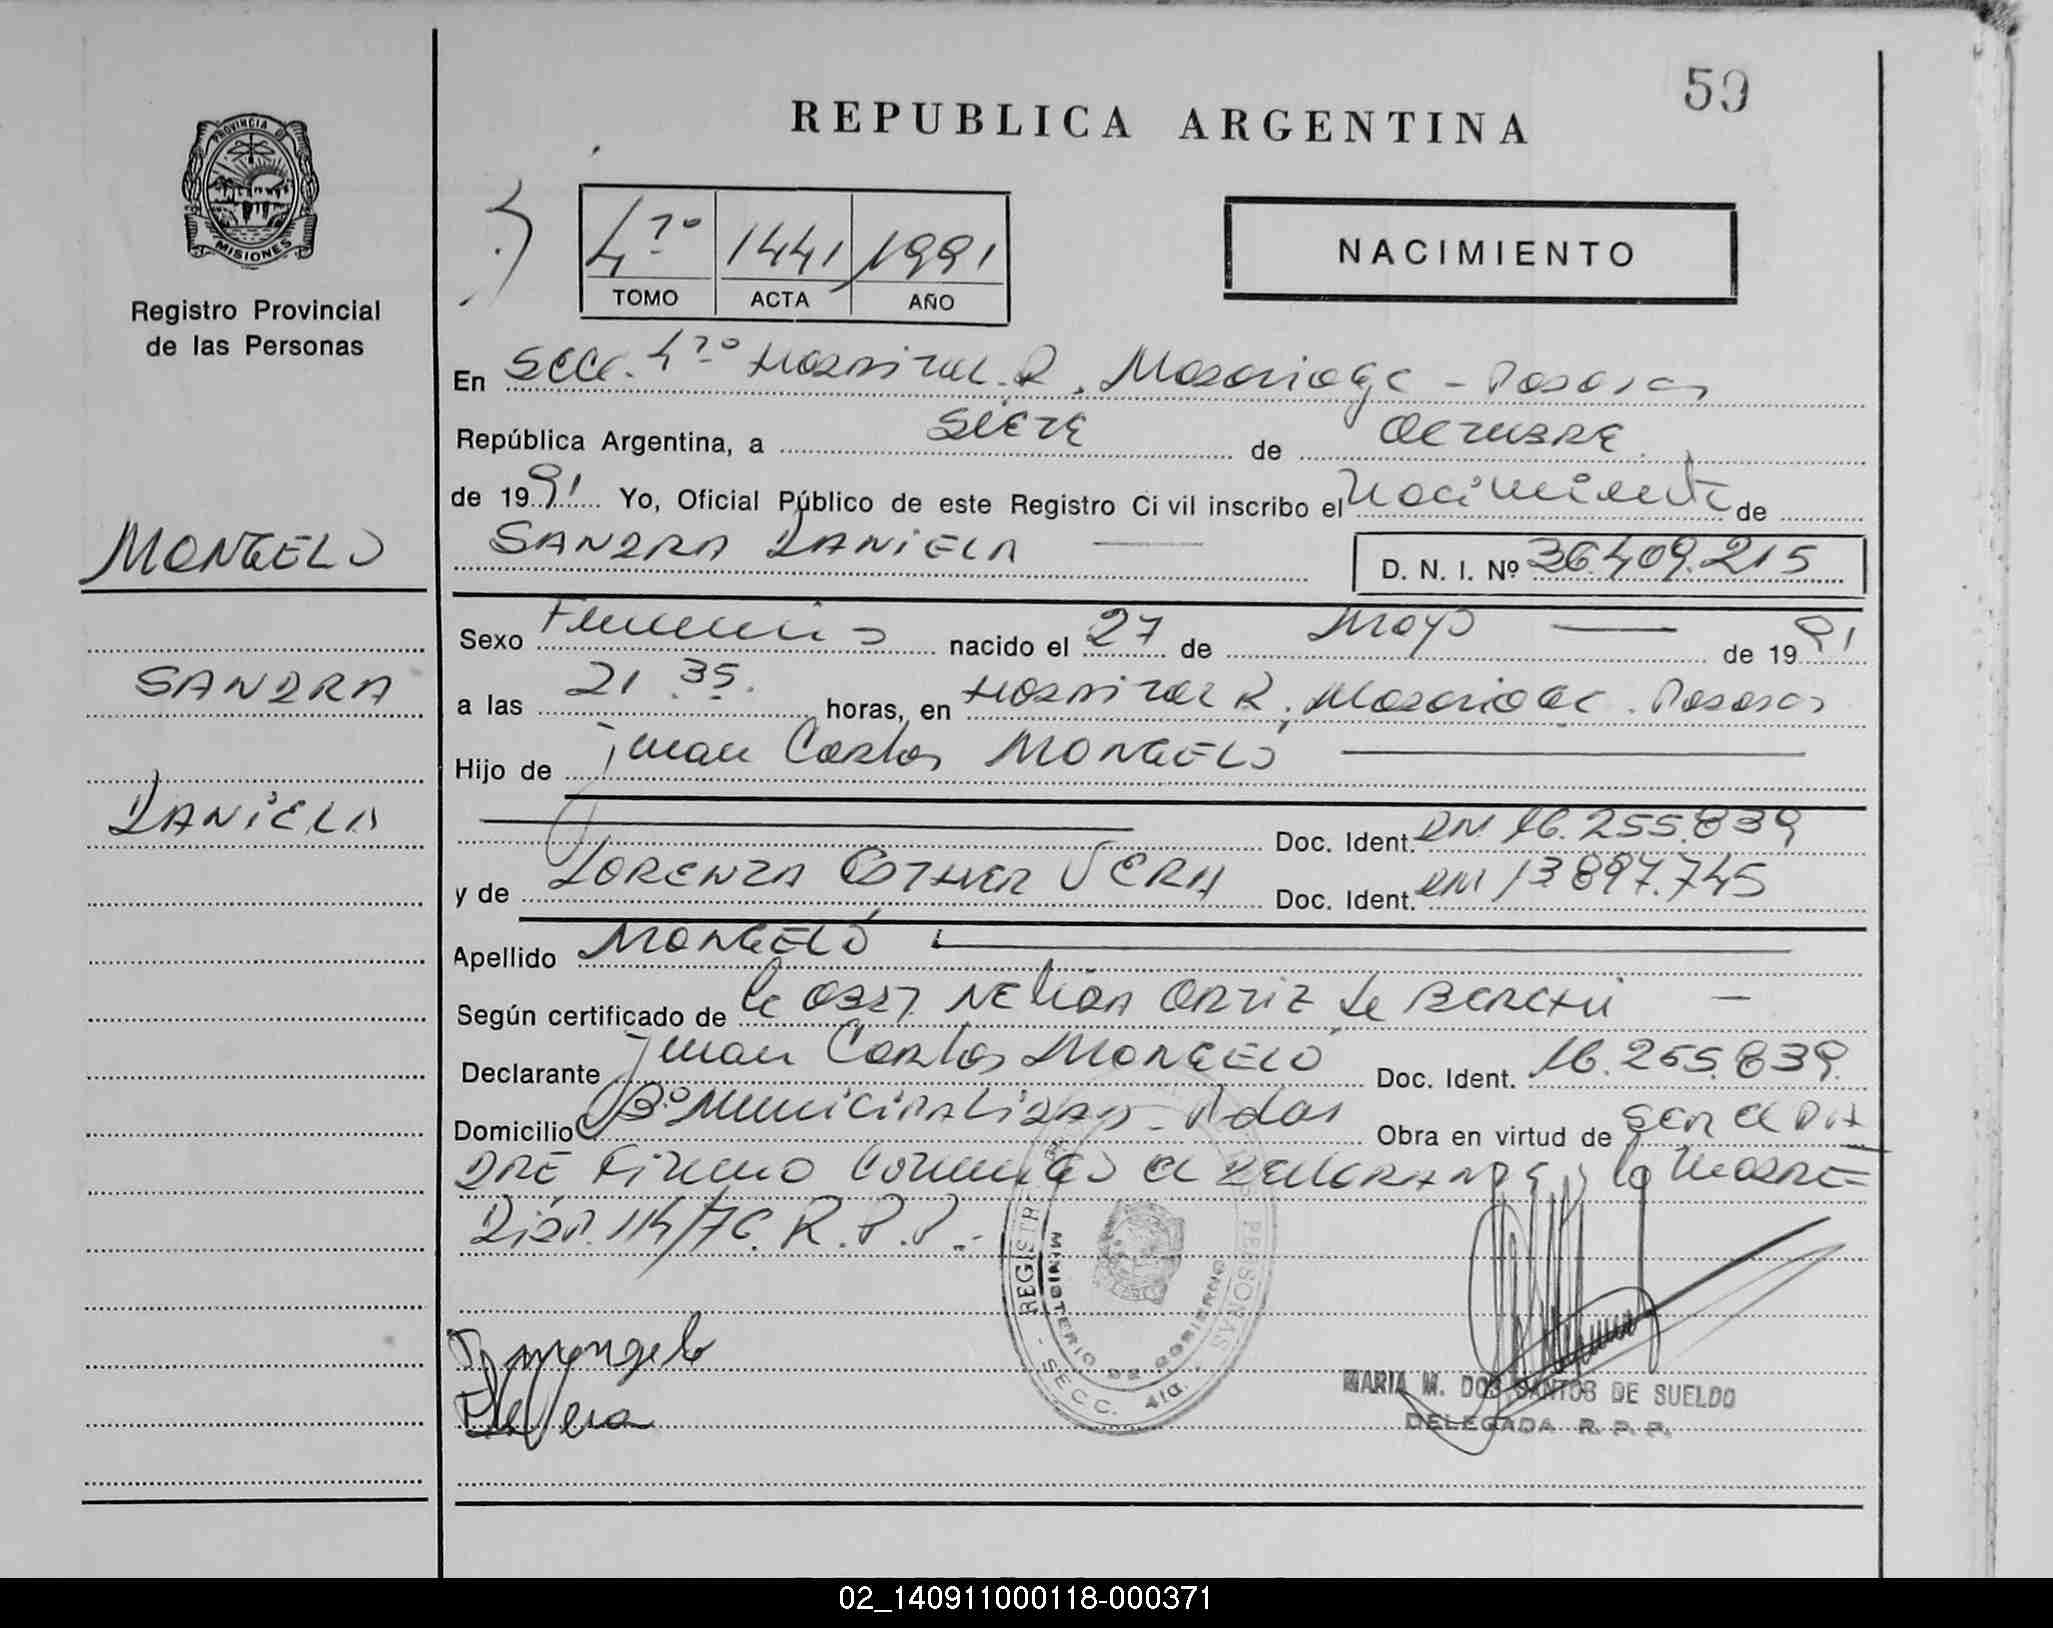 59
REPUBLICA ARGENTINA
PROVINCIA DE
MISIONES
Registro Provincial
de las Personas
4to 1441 1991
TOMO ACTA AÑO
NACIMIENTO
En Secc. 4ta Hospital R. Madariaga - Posadas
República Argentina, a SIETE de OCTUBRE
de 1991 Yo, Oficial Público de este Registro Civil inscribo el Nacimiento de
SANDRA DANIELA D. N. I. Nº 36.409.215
MONGELO
SANDRA
DANIELA
Sexo Femenino nacido el 27 de Mayo de 1991
a las 21.35. horas, en Hospital R. Madariaga. Posadas
Hijo de Juan Carlos MONGELÓ
Doc. Ident. DNI 16.255.839
y de LORENZA ESTHER VERA Doc. Ident. DNI 13.897.745
Apellido MONGELÓ
Según certificado de la OBST. NELIDA ORTIZ de
Declarante Juan Carlos MONGELÓ Doc. Ident. 16.255.839
Domicilio Bº Municipalidad - Pdas Obra en virtud de SER el PA
DRE Firman con el y la MADRE
Disp. 114/76. R.P.P.-
REGISTR PERSONAS
MINISTERIO DE GOBIERNO
- SECC. 4ta.
Mongelo
Vera
MARIA M. DOS SANTOS DE SUELDO
DELEGADA R. P. P.
02_140911000118-000371